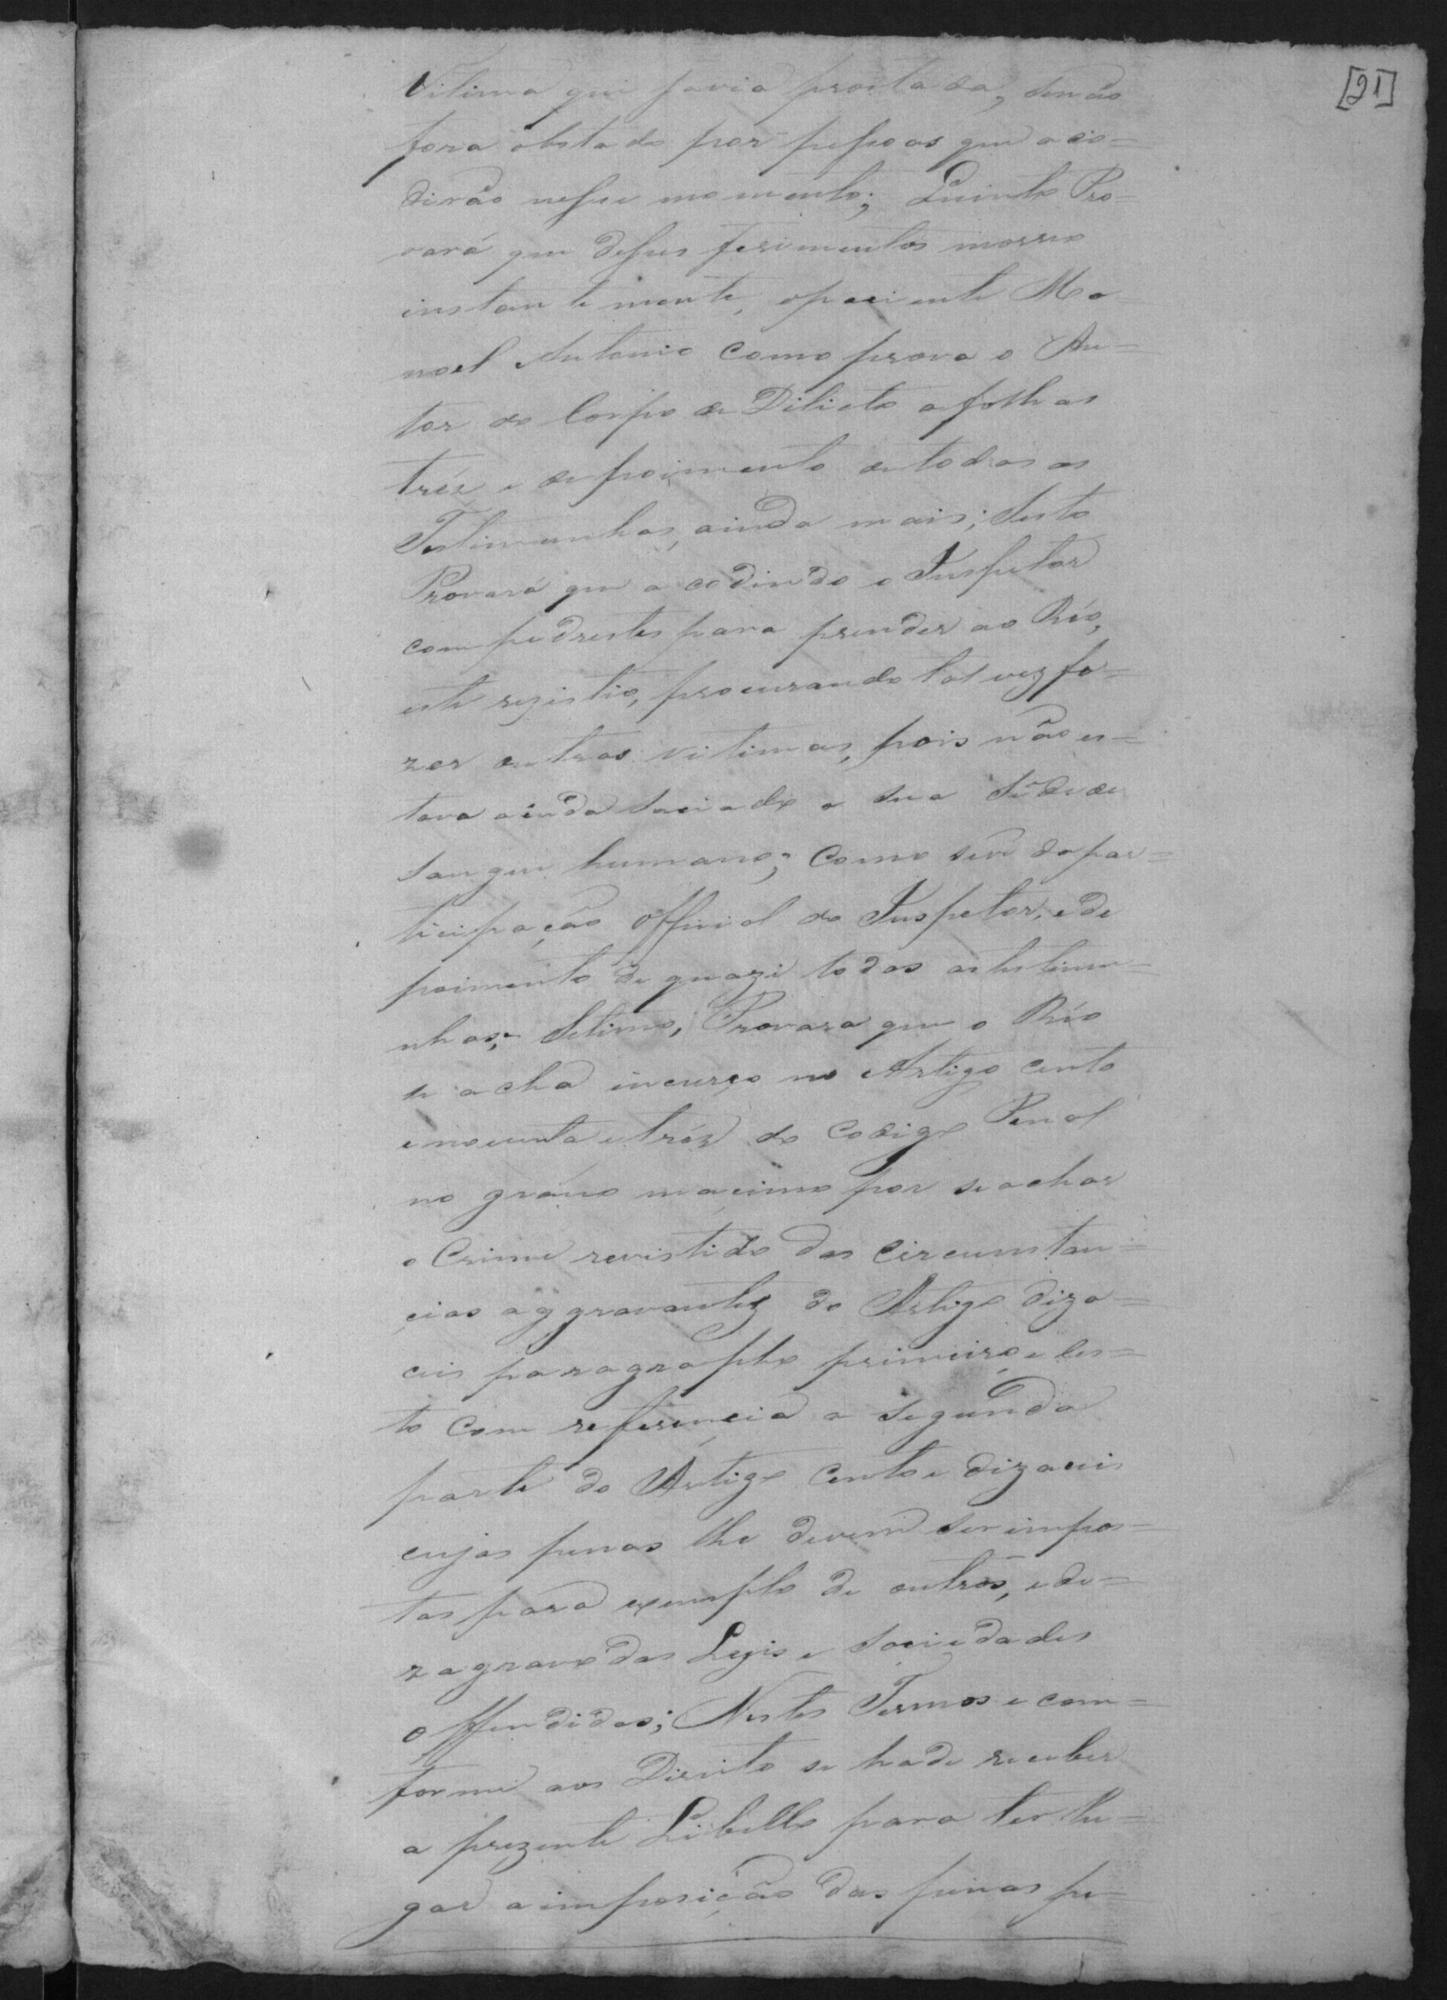 [21]
Vitima que javia prostada, senão
fora obstado por pessoas que aco-
dirão nesse momento; Quinto Pro-
vará que desses ferimentos morreo
instantemente, o paciente Ma-
noel Antonio como prova o Au-
tor do Corpo de Dilicto a folhas
tréz e depoimento de todas as
Testimunhas, ainda mais; Sesto
Provará que acodindo o Inspetor
com pedrestes para prender ao Réo,
este rezistio, procurando talvez fa-
zer outras vitimas, pois não es-
tava ainda saciado a sua sêde de
sangue humano; Como se vê da par-
ticipação Official do Inspetor, e de
poimento de quazi todas as testimu-
nhas; Setimo; Provara que o Réo
se acha incurço no Artigo cento
e noventa e tréz do Codigo Penal
no gráuo macimo por se achar
o Crime revistido das circunstan-
cias aggravantes do Artigo diza-
ceis paragrapho primeiro e ses-
to com referencia a segunda
parte do Artigo cento e dizaceis
cujas penas lhe devem ser impos-
tas para exemplo de outros, e de-
zagravo das Leys e Sociedades
offendidas; Nestes Termos e com-
forme aos Direito se hade receber
a prezente Libello para ter lu-
gar a imposição das penas pe-